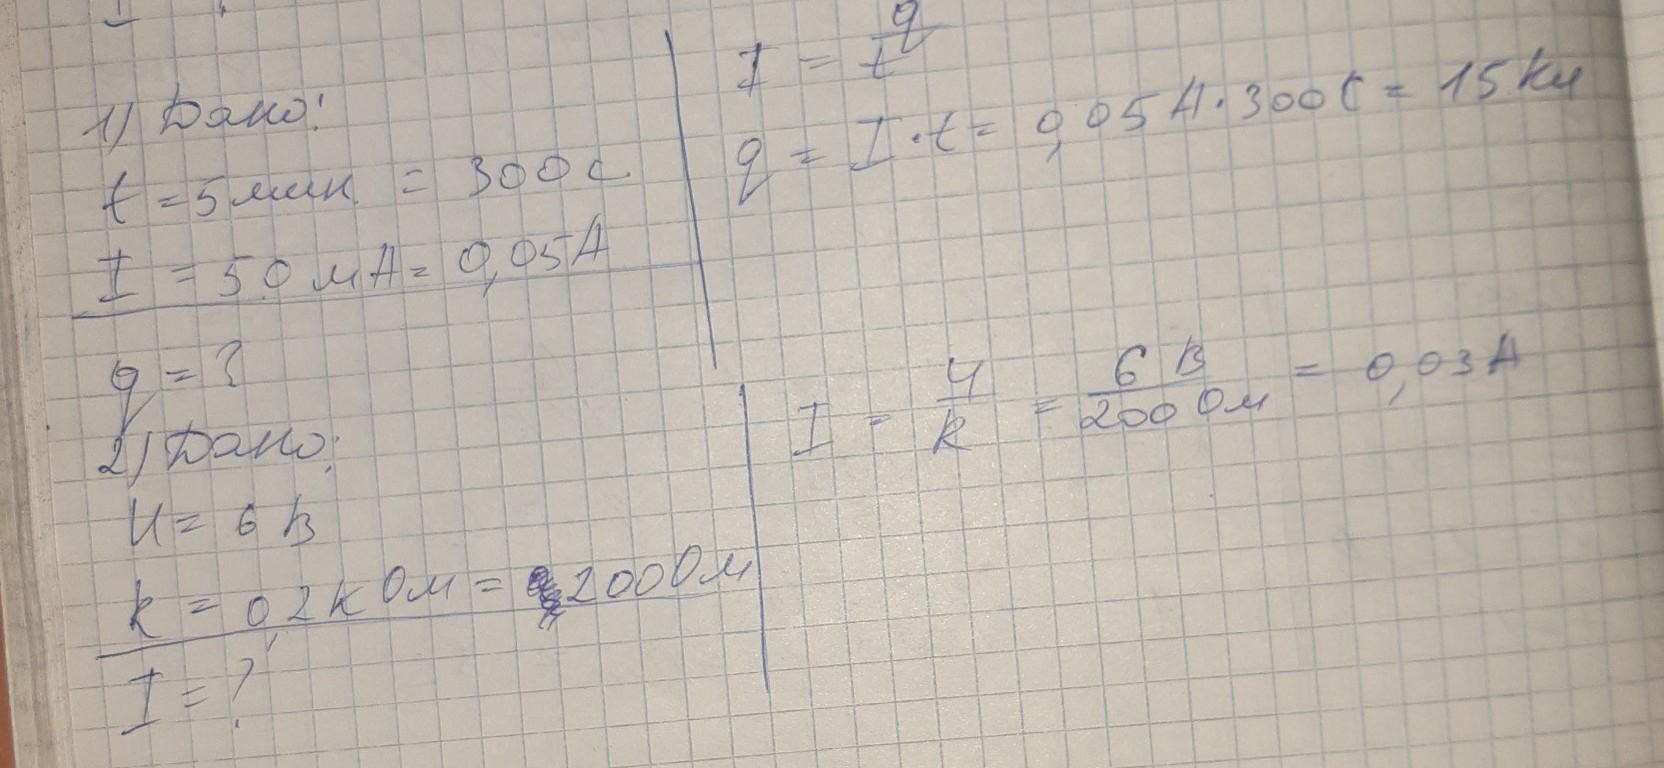 1) Дано:
t = 5 мин = 300 с
I = 50 мА = 0,05 А
q = ?
I = q/t
q = I · t = 0,05 А · 300 с = 15 Кл
2) Дано:
U = 6 В
R = 0,2 кОм = 200 Ом
I = ?
I = U/R = 6 В/200 Ом = 0,03 А